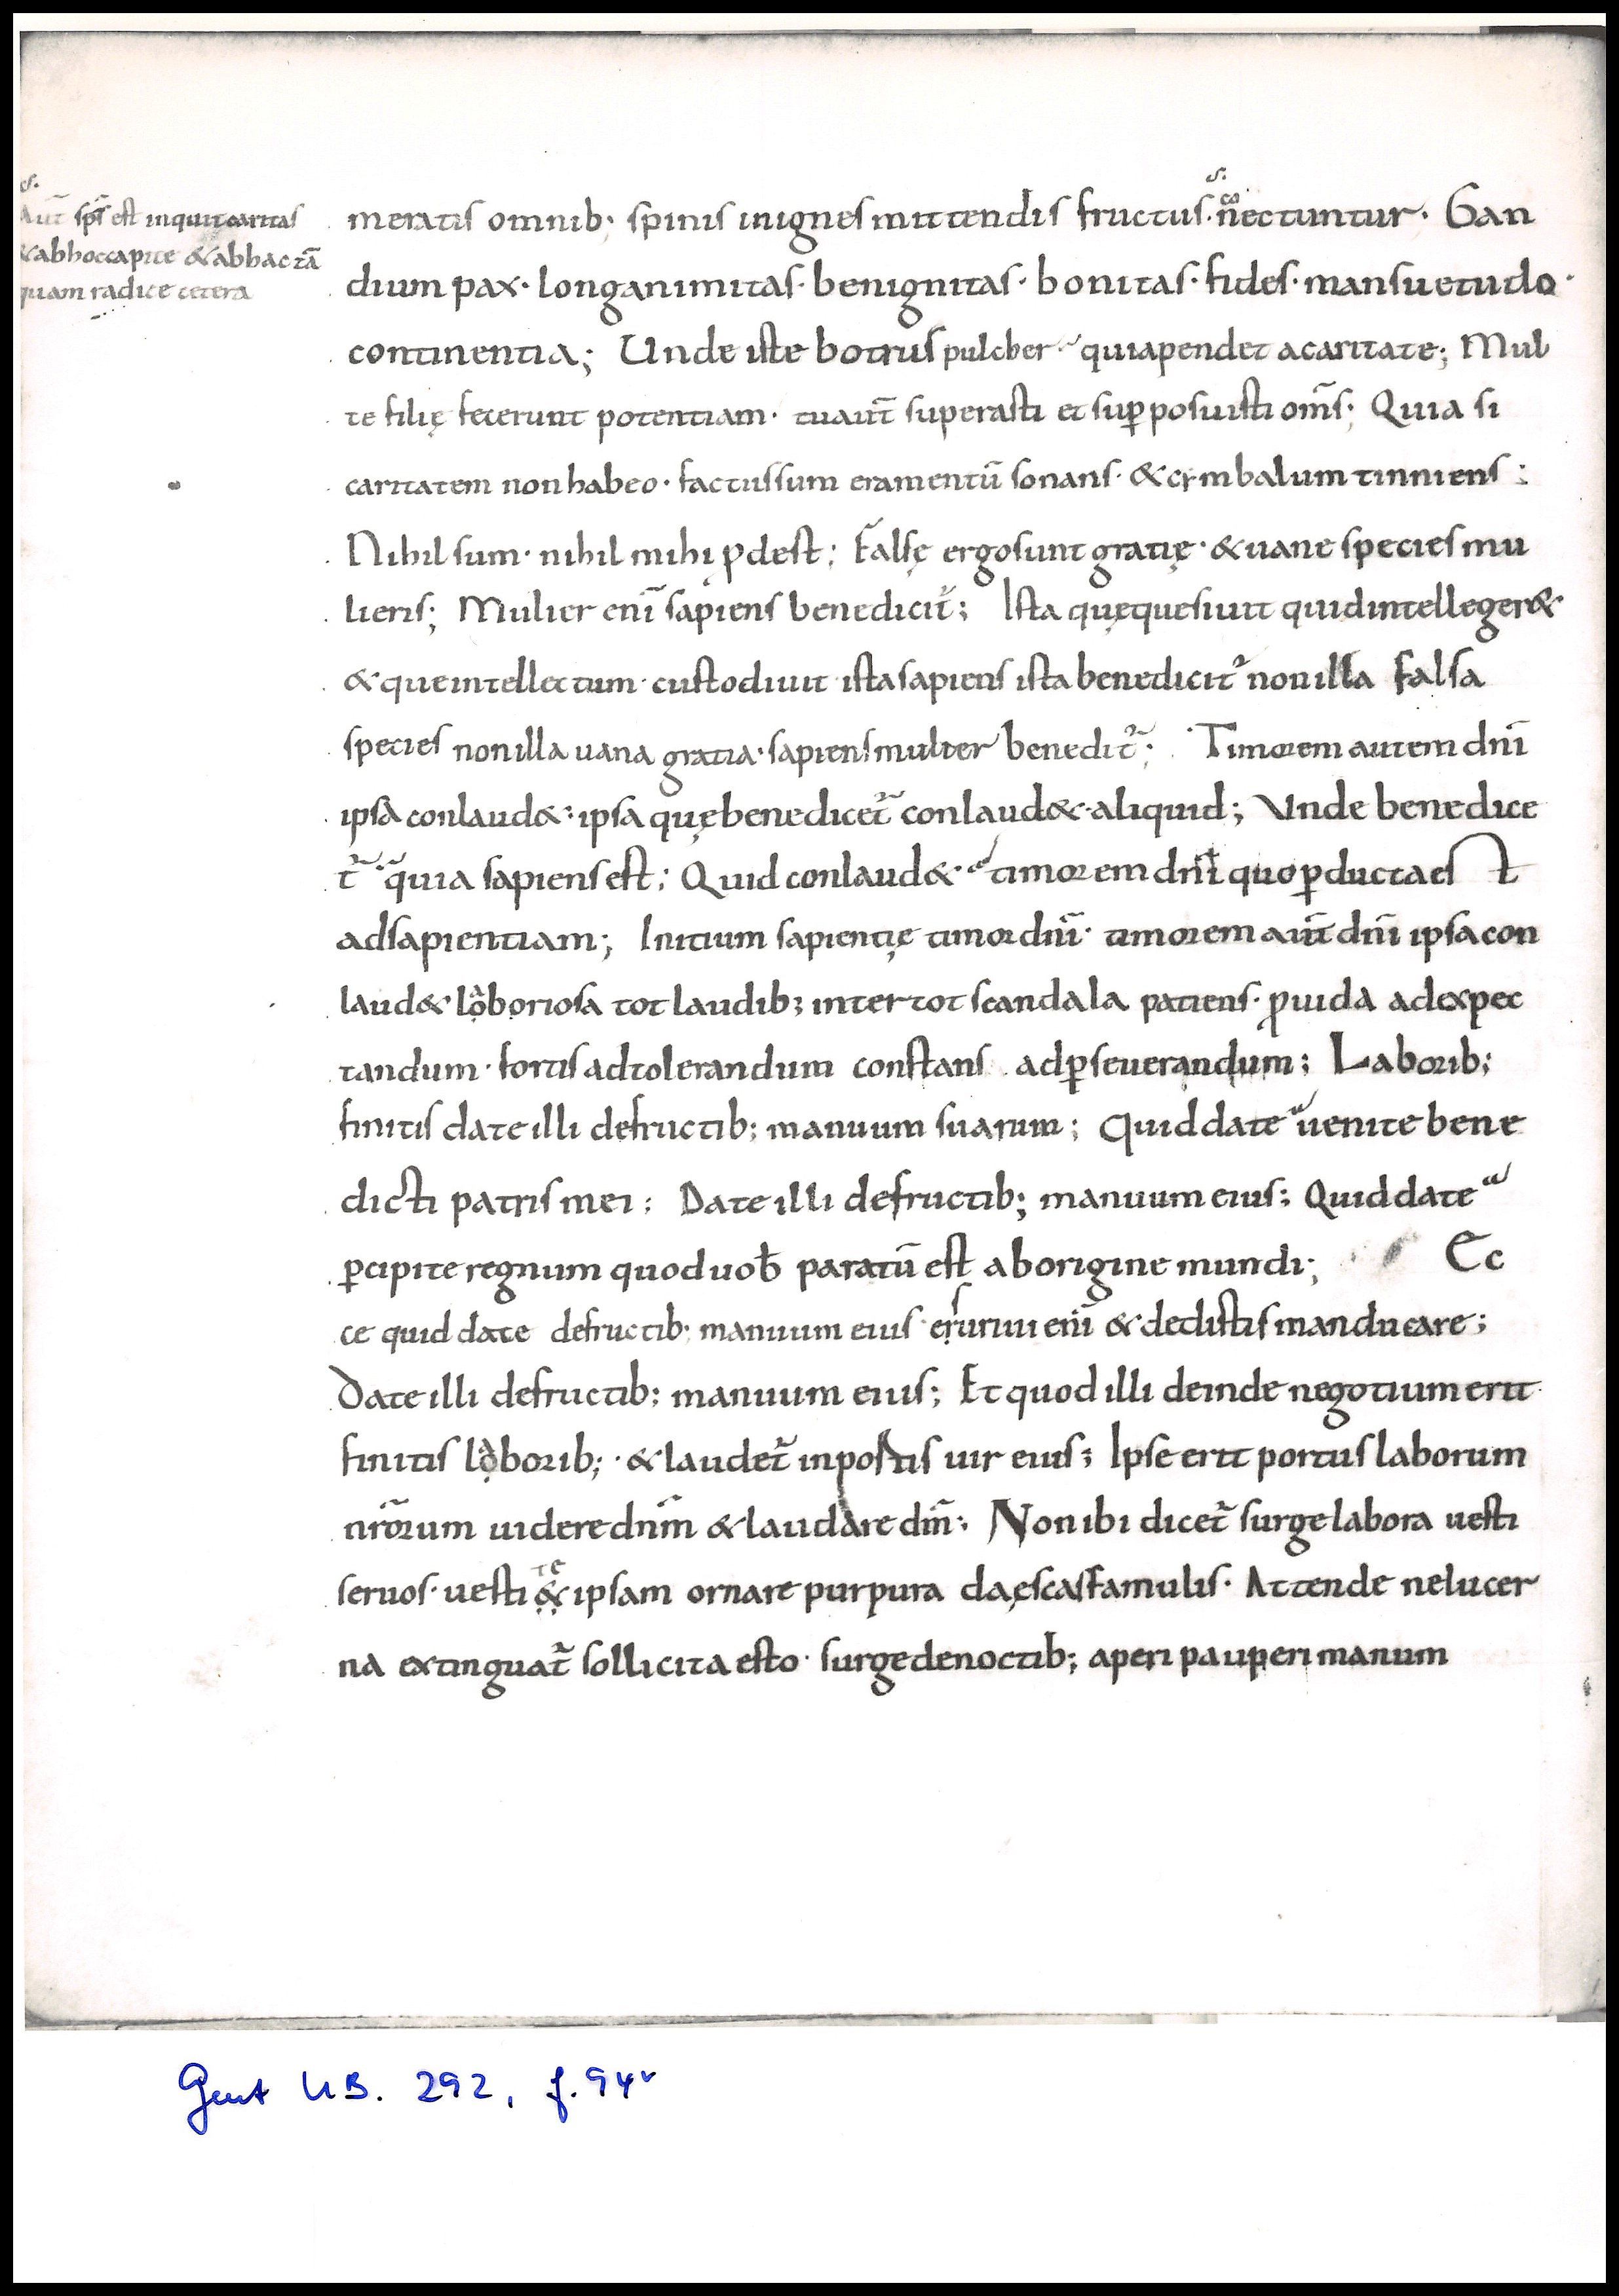 aut̄ sp̄s est inquit caritas
& ab hoc capite & ab hac tā
quam radice cetera
meratis omnib; spinis in ignes mittendis fructus · nectuntur · Gau
dium pax · longanimitas · benignitas · bonitas · fides · mansuetudo ·
continentia; Unde iste botrus pulcher quia pendet a caritate; Mul
te filię fecerunt potentiam · tu aut̄ superasti et sup̱posuisti om̄s; Quia si
caritatem non habeo · factus sum eramentū sonans · & cymbalum tinniens;
Nihil sum · nihil mihi ꝓdest; Falsę ergo sunt gratię · & uane species mu
lieris; Mulier eni̅ sapiens benedicit᷑; Ista quę quesiuit quid intelleger&
& que intellectum custodiuit ista sapiens ista benedicit᷑ non illa falsa
species non illa uana gratia · sapiens mulier benedit᷑; Timorem autem dnī
ipsa conlaud& · ipsa quę benedicet᷑ conlaud& aliquid; Unde benedice
t᷑ quia sapiens est; Quid conlaud& timorem dnī quo ꝑducta est
ad sapientiam; Initium sapientię timor dnī · timorem aut̄ dnī ipsa con
laud& lạboriosa tot laudib; inter tot scandala patiens · ꝓuida ad expec
tandum · fortis ad tolerandum constans ad ꝑseuerandum; Laborib;
finitis date illi de fructib; manuum suarum; Quid date uenite bene
dicti patris mei; Date illi de fructib; manuum eius; Quid date
ꝑcipite regnum quod uob̄ paratū est ab origine mundi; Ec
ce quid date de fructib; manuum eius esuriui eni̅ & dedistis manducare;
Date illi de fructib; manuum eius; Et quod illi deinde negotium erit
finitis lạborib; · & laudet᷑ in portis uir eius; Ipse erit portus laborum
nr̄orum uidere dnm̄ & laudare dm̄; Non ibi dicet᷑ surge labora uesti
seruos · uesti & te ipsam ornare purpura da escas famulis · Attende ne lucer
na extinguat᷑ sollicita esto · surge de noctib; aperi pauperi manum
Gent UB. 292, f. 94v